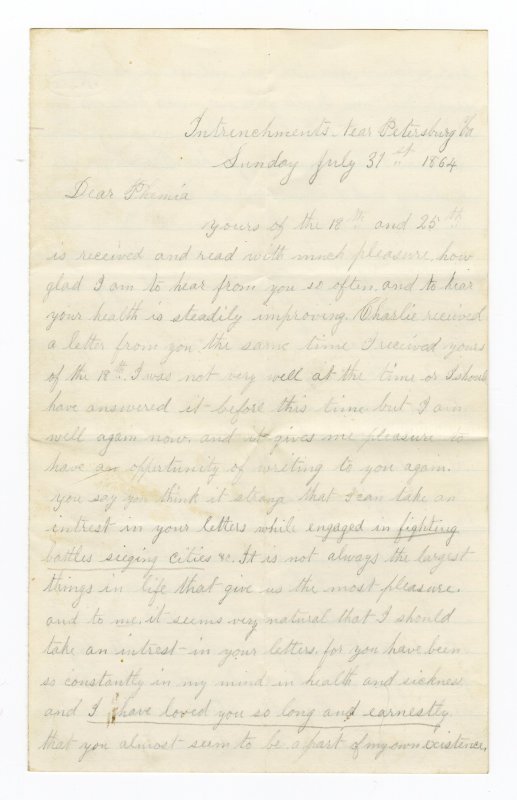 Intrenchments Near Petersburg Va
Sunday July 31st 1864
Dear Phemia
yours of the 18th and 25th
is received and read with much pleasure, how
glad I am to hear from you so often and to hear
your health is steadily improving. Charlie received
a letter from you the same time I received yours
of the 18th. I was not very well at the time or I should
have answered it before this time but I am
well again now. and it gives me pleasure to
have an oppertunity of writing to you again.
you say you think it strang that I can take an
intrest in your letters while engaged in fighting
battles sieging cities &c. It is not always the largest
things in life that give us the most pleasure.
and to me it seems very natural that I should
take an intrest in your letters. for you have been
so constantly in my mind in health and sickness
and I have loved you so long and earnestly
that you almost seem to be a part of my own existence,